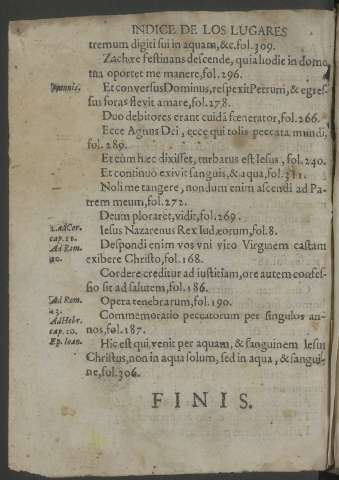 INDICE DE LOS LUGARES
tremum digiti sui in aquam, &c. fol. 309.
Zachæe festinans descende, quia hodie in domo
tua oportet me manere, fol. 296.
Ioannis. Et conversus Dominus, respexit Petrum, & egres-
sus foras flevit amare, fol. 278.
Duo debitores erant cuidã fœnerator, fol. 266.
Ecce Agnus Dei, ecce qui tolis peccata mundi,
fol. 289.
Et cùm hæc dixisset, turbatus est Iesus, fol. 240.
Et continuò exivit sanguis, & aqua, fol. 311.
Noli me tangere, nondum enim ascendi ad Pa-
trem meum, fol. 272.
Deum ploraret, vidit, fol. 269.
2. ad Cor. Iesus Nazarenus Rex Iudæorum, fol. 8.
cap. 11. Despondi enim vos vni viro Virginem castam
Ad Rom. exibere Christo, fol. 168.
10. Corde creditur ad iustitiam, ore autem confes-
sio fit ad salutem, fol. 186.
Ad Rom. Opera tenebrarum, fol. 190.
13. Commemoratio peccatorum per singulos an-
Ad Hebr. nos, fol. 187.
cap. 10.
Ep. Ioan. Hic est qui venit per aquam, & sanguinem Iesus
Christus, non in aqua solum, sed in aqua, & sangui-
ne, fol. 306.
FINIS.